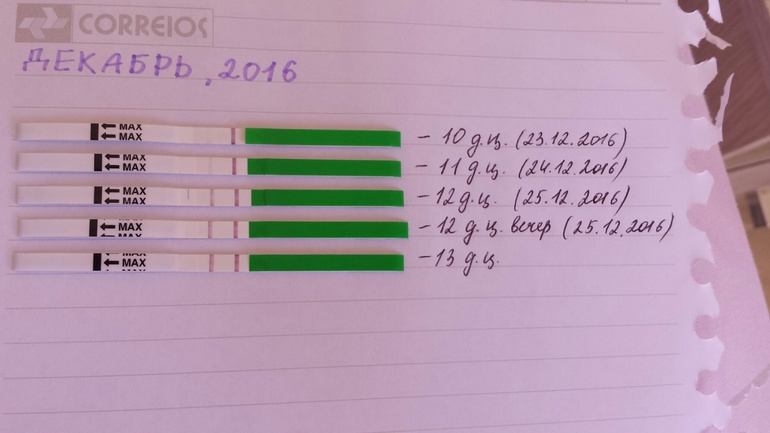 CORREIOS
ДЕКАБРЬ, 2016
MAX
MAX
- 10 д.ц. (23.12.2016)
MAX
MAX
- 11 д.ц. (24.12.2016)
MAX
MAX
- 12 д.ц. (25.12.2016)
MAX
MAX
MAX
- 12 д.ц. вечер (25.12.2016)
MAX
MAX
MAX
- 13 д.ц.